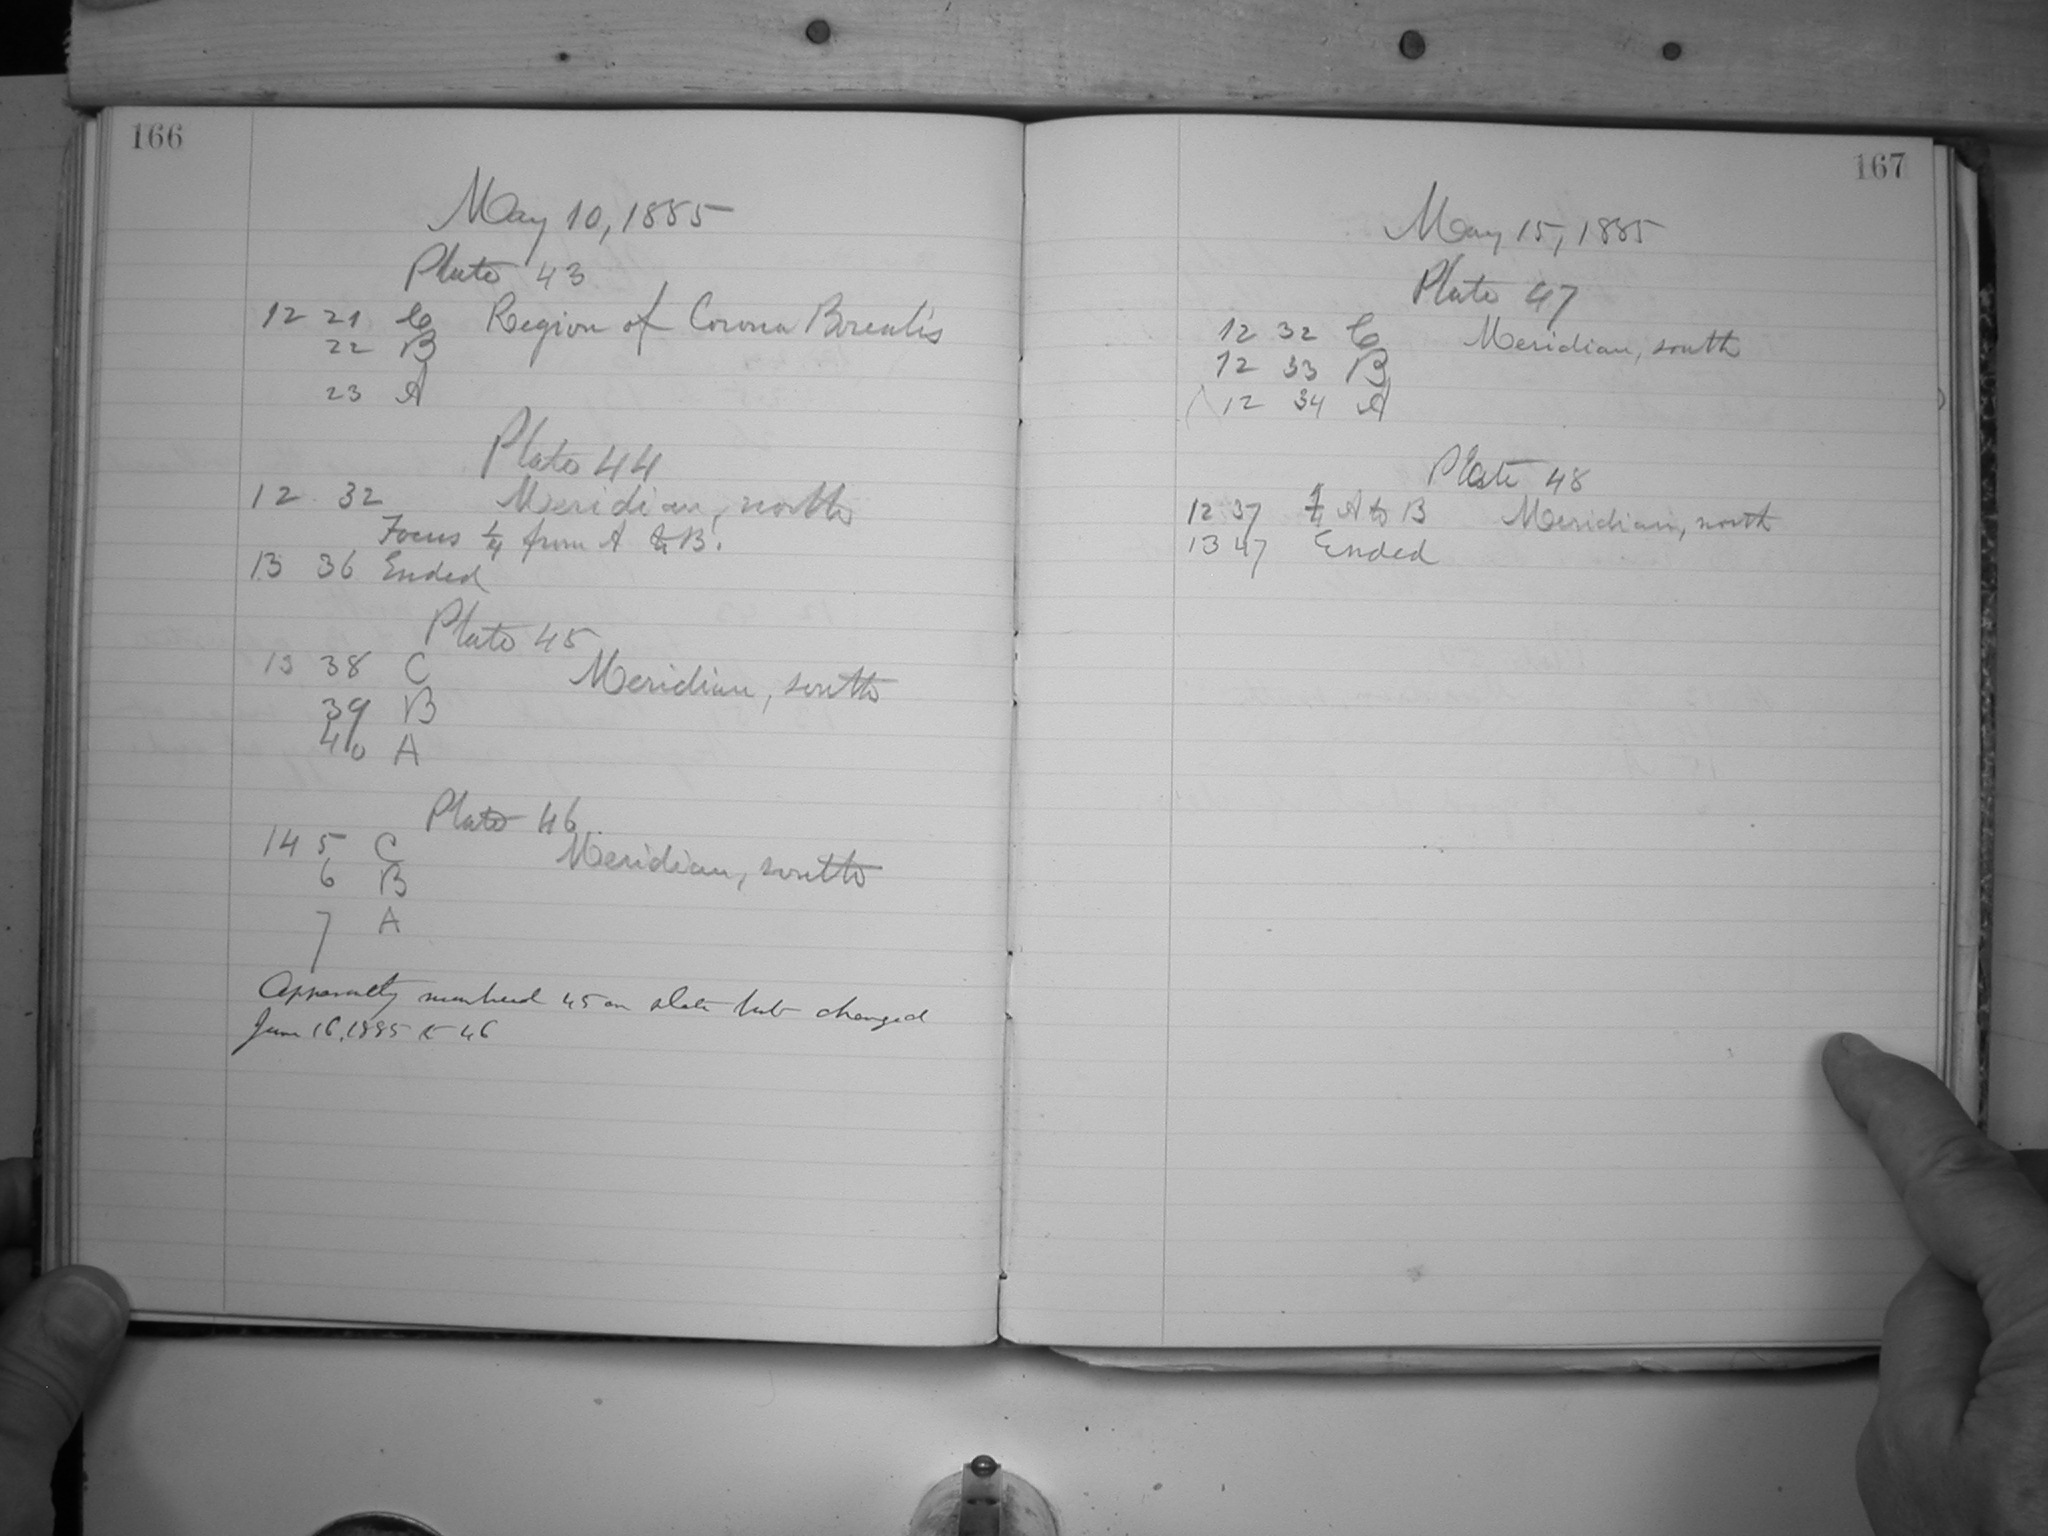 166
May 10, 1885
Plate 43
12 21 C Region of Corona Borealis
22 B
23 A
Plate 44
12 32 Meridian, north
Focus 1/4 from A to B.
13 36 Ended
Plate 45
13 38 C Meridian, south
39 B
40 A
Plate 46
14 5 C Meridian, south
6 B
7 A
Apparently numbered 45 on plate but changed
June 16, 1885 to 46
167
May 15, 1885
Plate 47
12 32 C Meridian, south
12 33 B
12 34 A
Plate 48
12 37 1/4 A to B Meridian, north
13 47 Ended